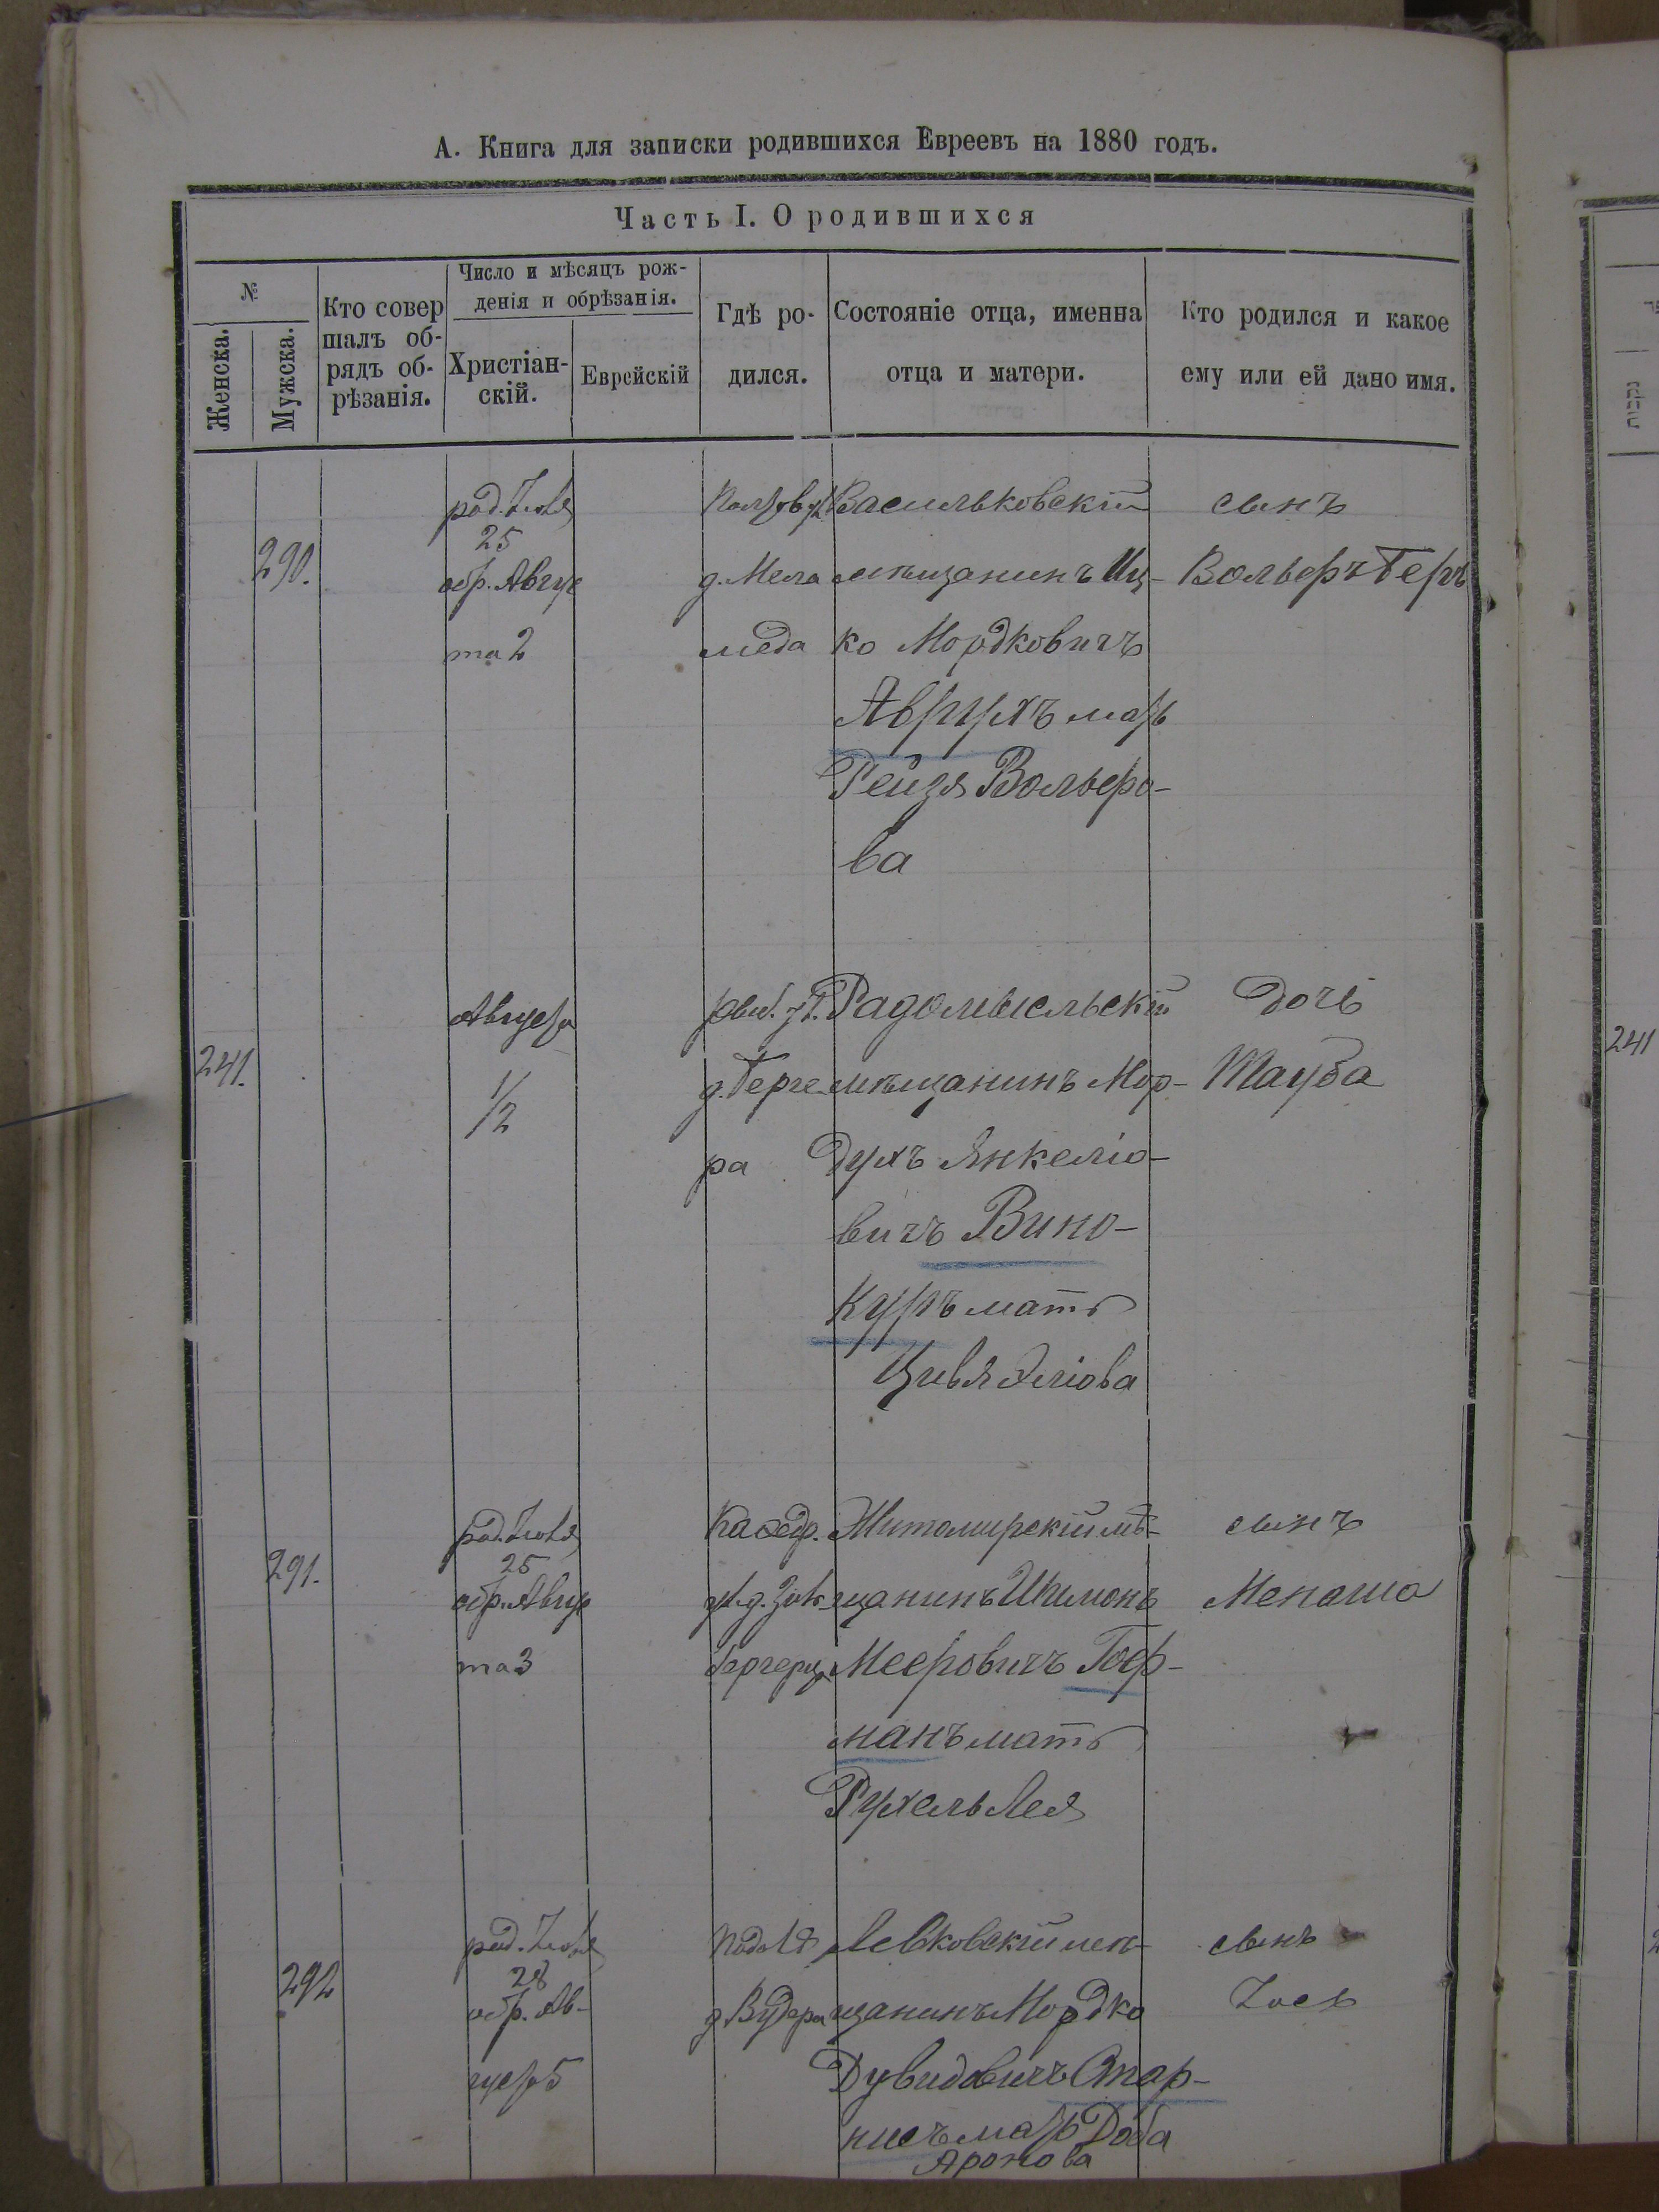 А. Книга для записки родившихся Евреевъ на 1880 годъ.
Часть I. О родившихся
№
Женска.
Мужска.
Кто совер
шалъ об-
рядъ об-
рѣзанія.
Число и мѣсяцъ рож-
денія и обрѣзанія.
Христіан-
скій.
Еврейскій
Гдѣ ро-
дился.
Состояніе отца, именна
отца и матери.
Кто родился и какое
ему или ей дано имя.
290.
род. Іюля
25
обр. Авгус
та 2
д. Мела
меда
Васильковскій
мѣщанинъ Иц-
ко Мордковичъ
Аврухъ мать
Рейзя Вольфо-
ва
сынъ
Вольфъ Беръ
241.
Августа
1/2
д. Герге
ра
Радомысльскій
мѣщанинъ Мор-
духъ Янкеліо-
вичъ Вино-
куръ мать
Цивя Эліова
дочь
Тауба
291.
род. Іюля
25
обр. Авгус
та 3
Каѳедр.
Житомирскій мѣ-
щанинъ Шимонъ
Мееровичъ Гоф-
манъ мать
Рухель Лея
сынъ
Менаша
292
род. Іюля
28
обр. Ав-
густа 5
Левковскій мѣ-
щанинъ Мордко
Дувидовичъ Стар-
нисъ мать Доба
Аронова
сынъ
Іось
241